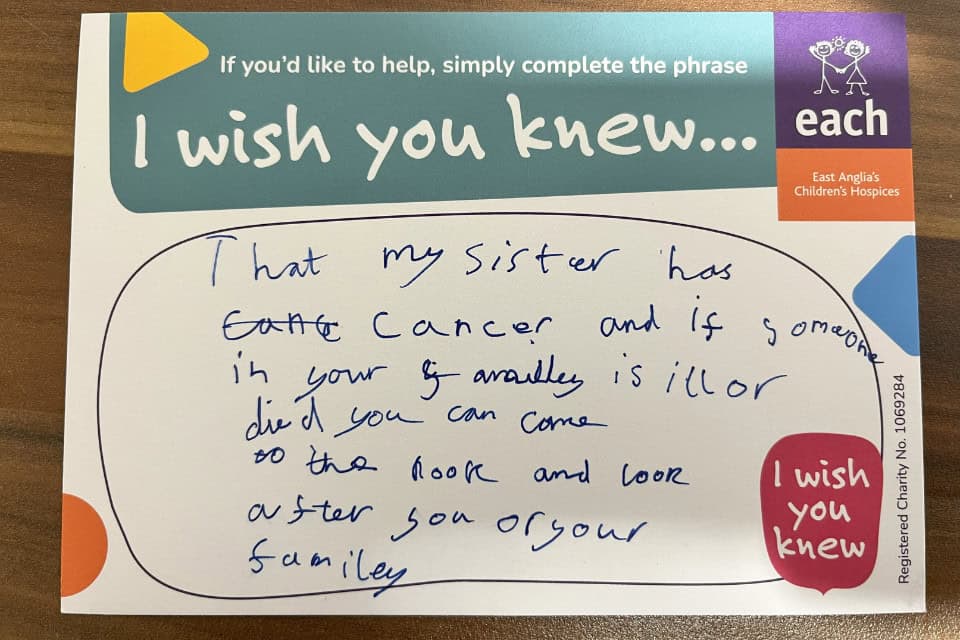 If you'd like to help, simply complete the phrase
I wish you knew...
each
East Anglia's
Children's Hospices
That my sister has
Cancer and if someone
in your is ill or
died you can come
to the nook and look
after you or your
familey
I wish
you
knew
Registered Charity No. 1069284